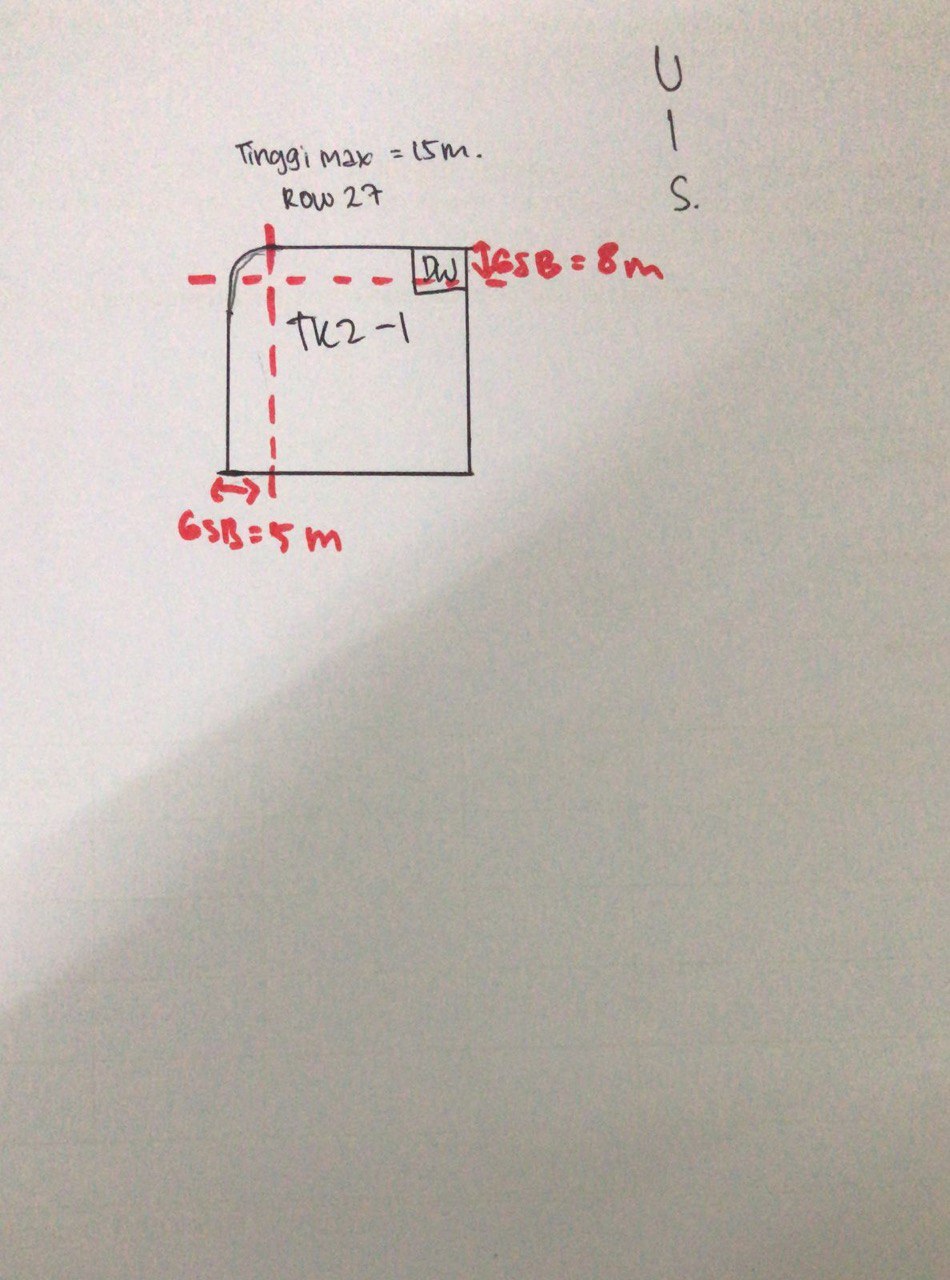 U
I
S.
Tinggi max = 15 m.
ROW 27
DW
GSB = 8 m
TK2-1
GSB = 5 m